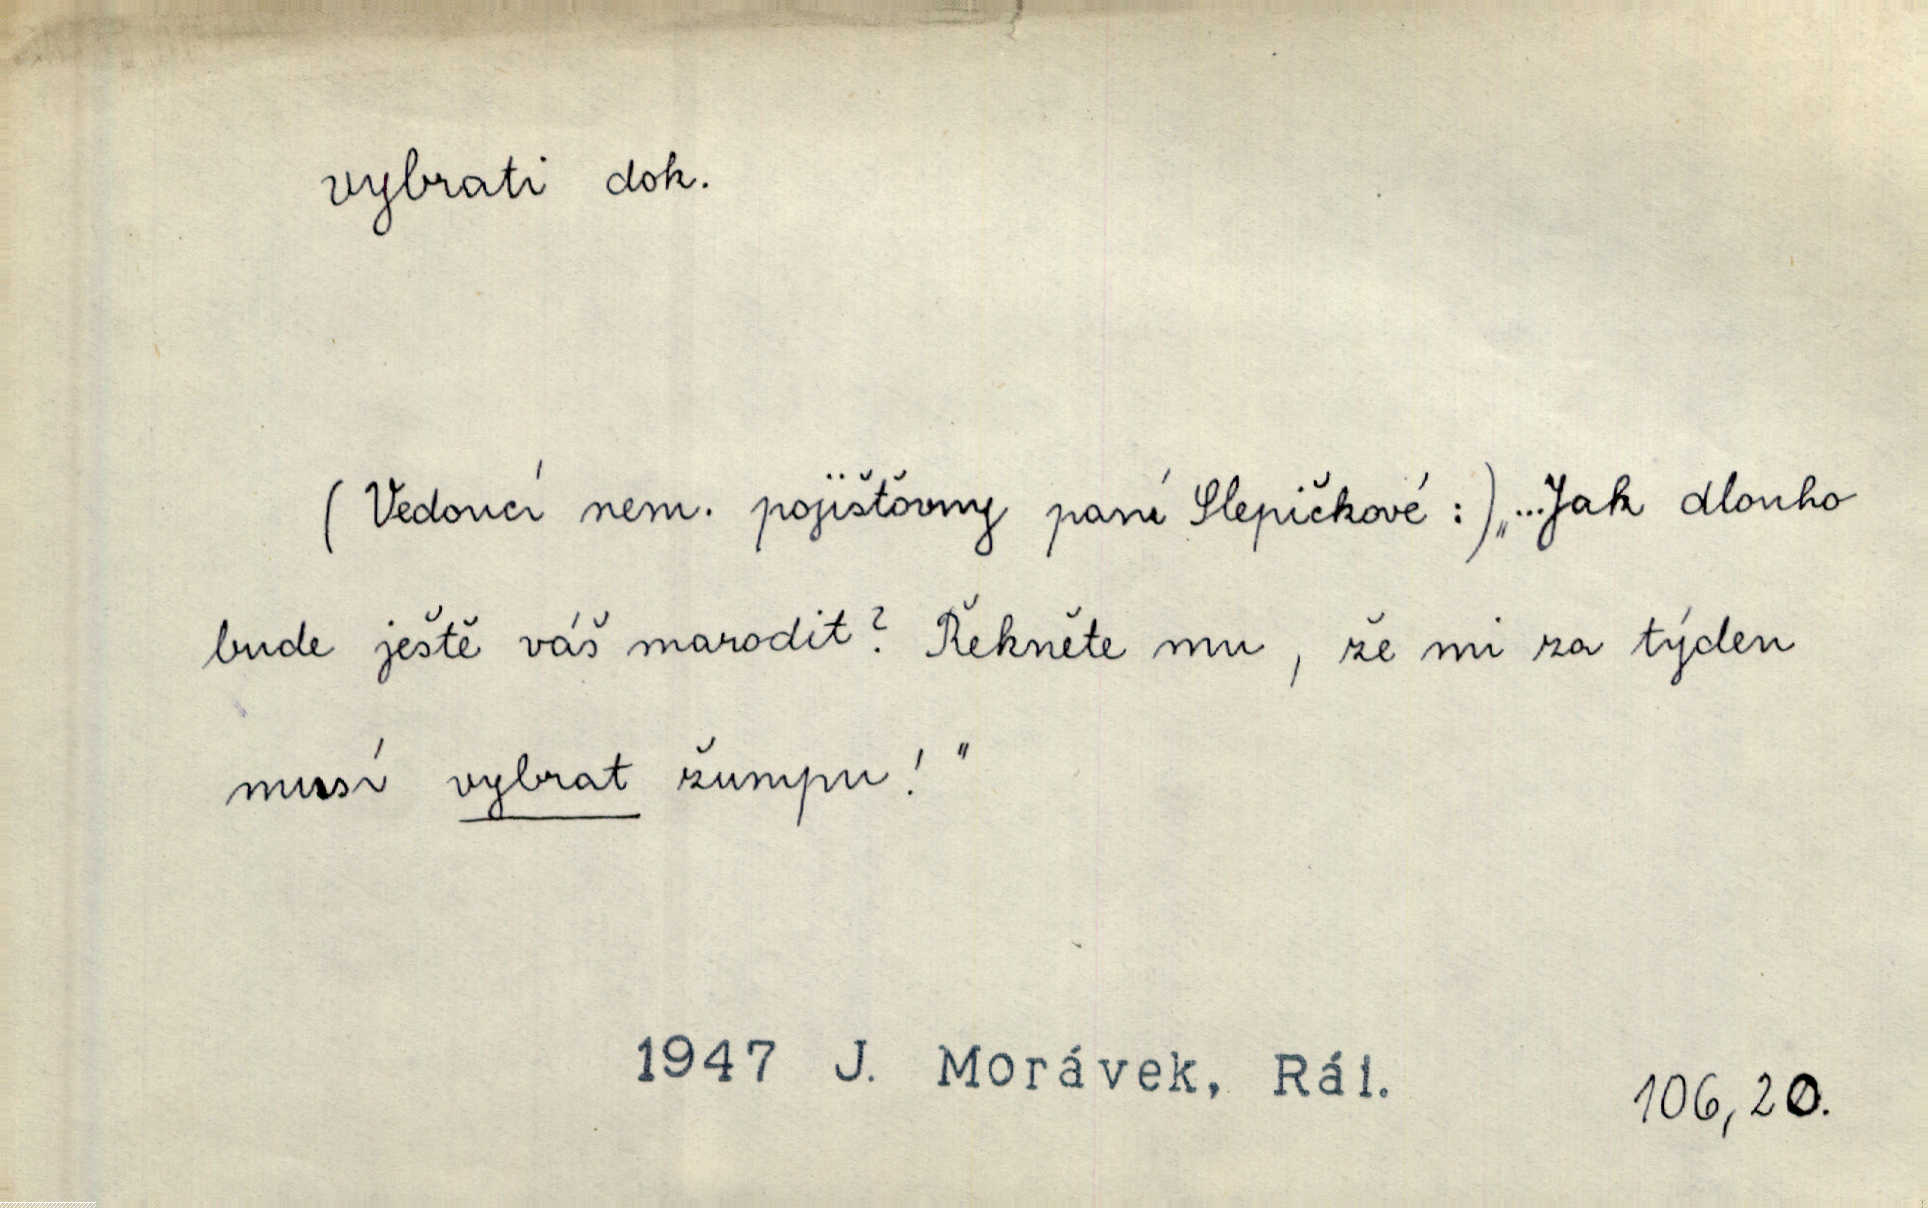 vybrati dok.
(Vedoucí nem. pojišťovny paní Slepičkové:) „...Jak dlouho
bude ještě váš marodit? Řekněte mu, že mi za týden
musí vybrat žumpu!"
1947 J. Morávek, Rál.
106,20.